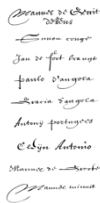 Mannes de Gerrit
de Reus
Simon congo
Jan de fort orange
paulo d'angola
Gracia d'angola
Antony portugees
Cleijn Antonio
Mannes de Groote
Manuel minuit